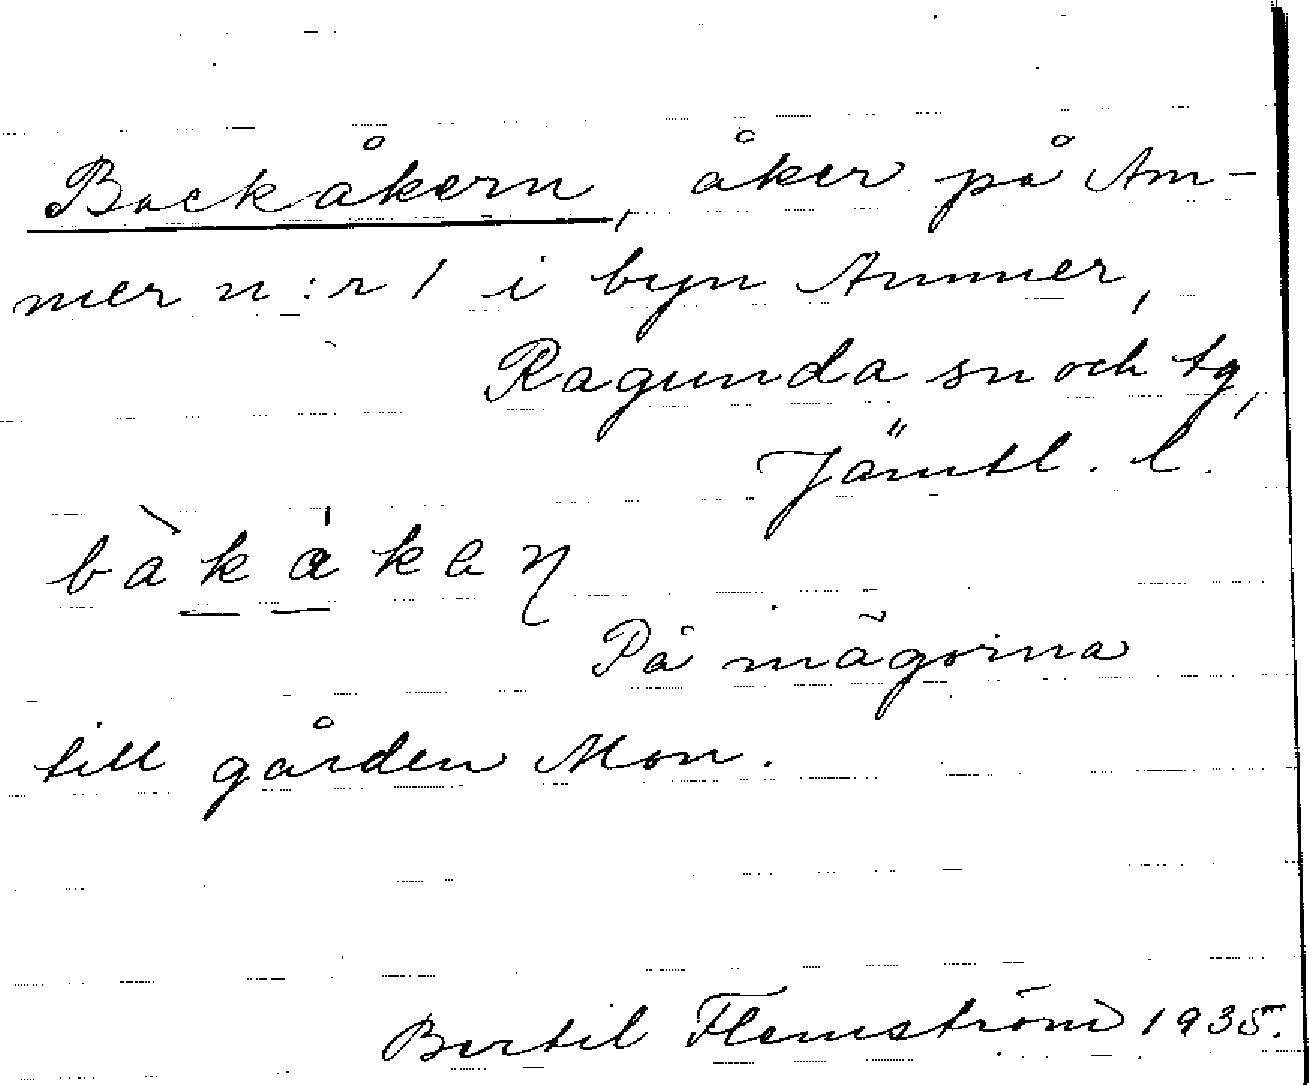 Backåkern, åker på Am-
mer n:r 1 i byn Ammer,
Ragunda sn och tg,
Jämtl. l.
På mågorna
till gården Mon.
Bertil Flemström 1935.